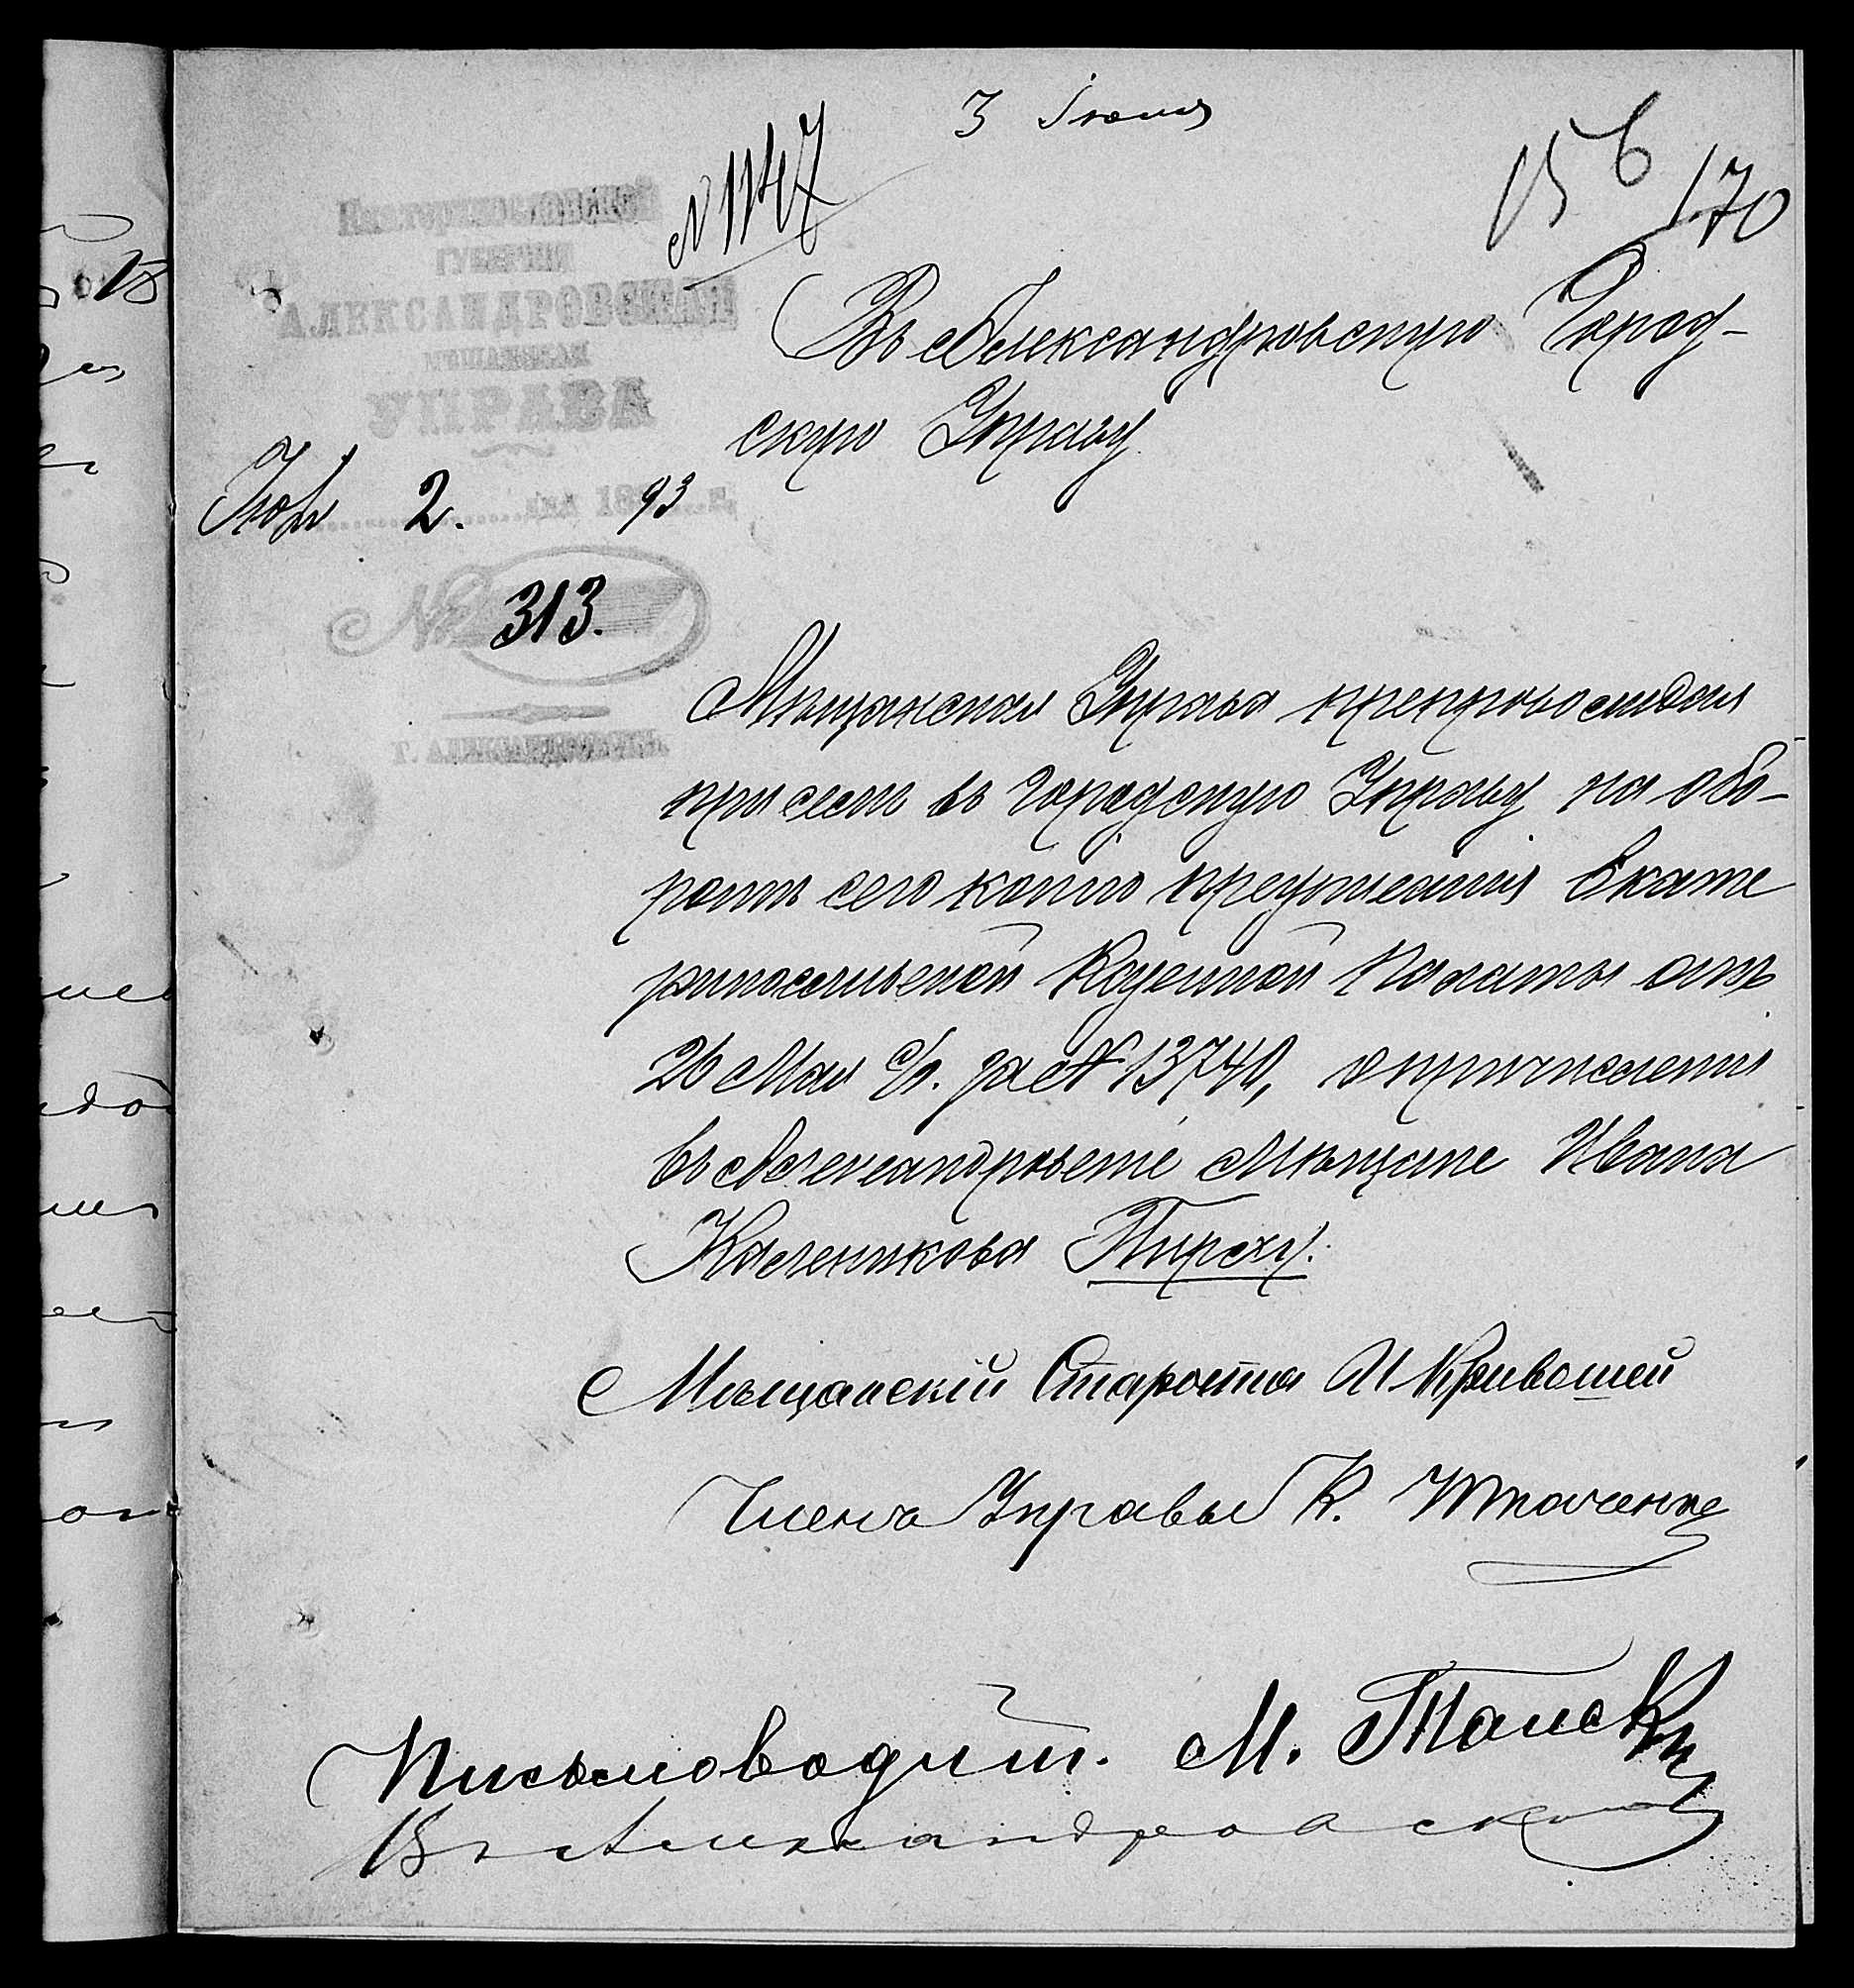 3 Іюня
№ 1747
156
170
Екатеринославской
ГУБЕРНІИ
АЛЕКСАНДРОВСКАЯ
МѢЩАНСКАЯ
УПРАВА
Іюня 2. дня 1893 г.
№ 313.
Г. АЛЕКСАНДРОВСКЪ
Въ Александровскую Город-
скую Управу
Мѣщанская Управа препровождая
при семъ въ Городскую Управу на обо-
ротѣ сего копію предписанія Екате
ринославской Казенной Палаты отъ
26 Мая с/г. за № 13740, о причисленіи
въ Александровскіе Мѣщане Ивана
Каленикова
Мѣщанскій Староста И Кривошей
Членъ Управы К. Ткаченко
Письмоводит. М.
В Александровскую